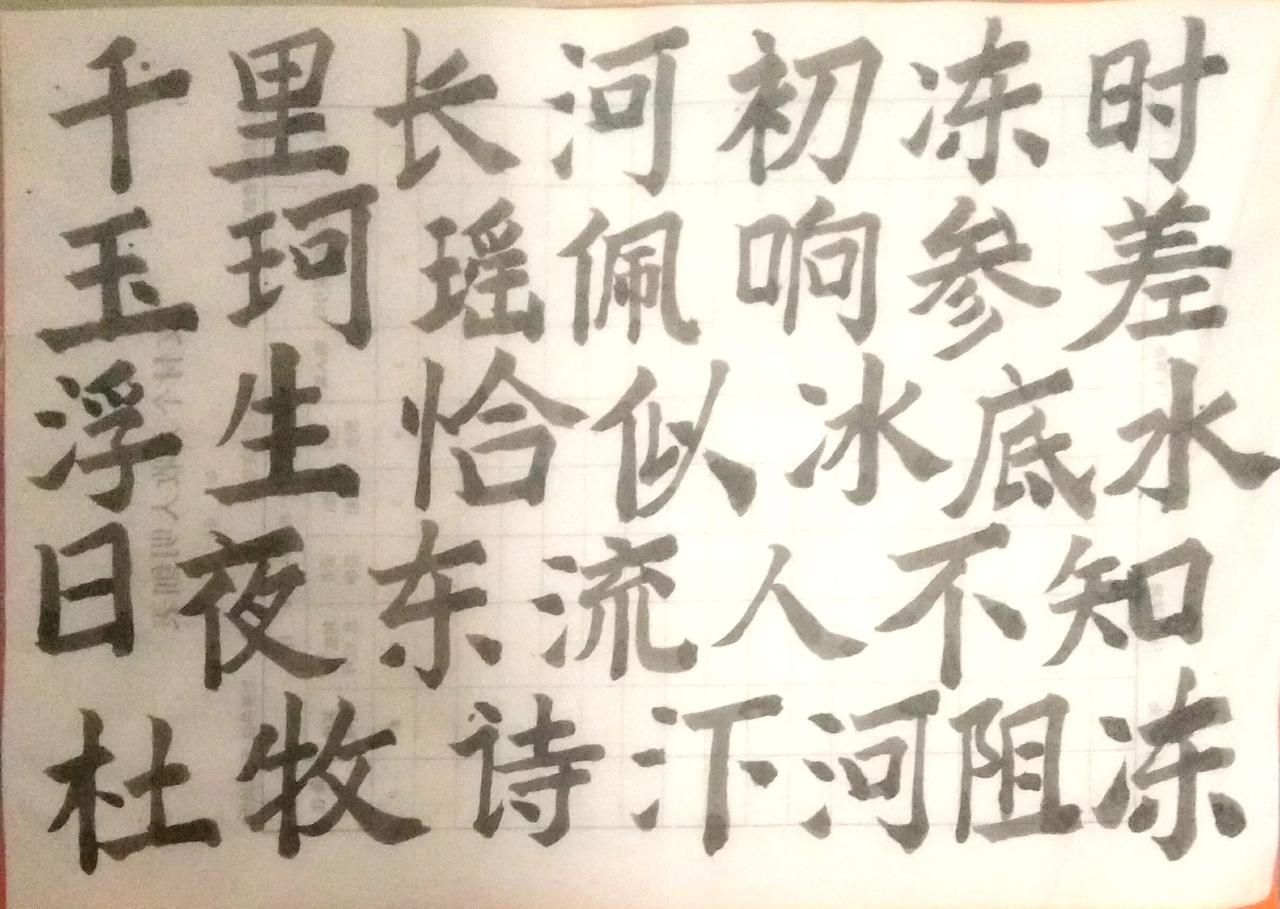 千里长河初冻时
玉珂瑶佩响参差
浮生恰似冰底水
日夜东流人不知
杜牧诗汴河阻冻